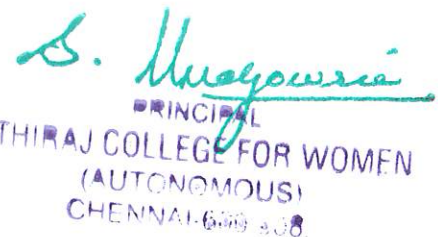 S.
PRINCIPAL
THIRAJ COLLEGE FOR WOMEN
(AUTONOMOUS)
CHENNAI-600 008.